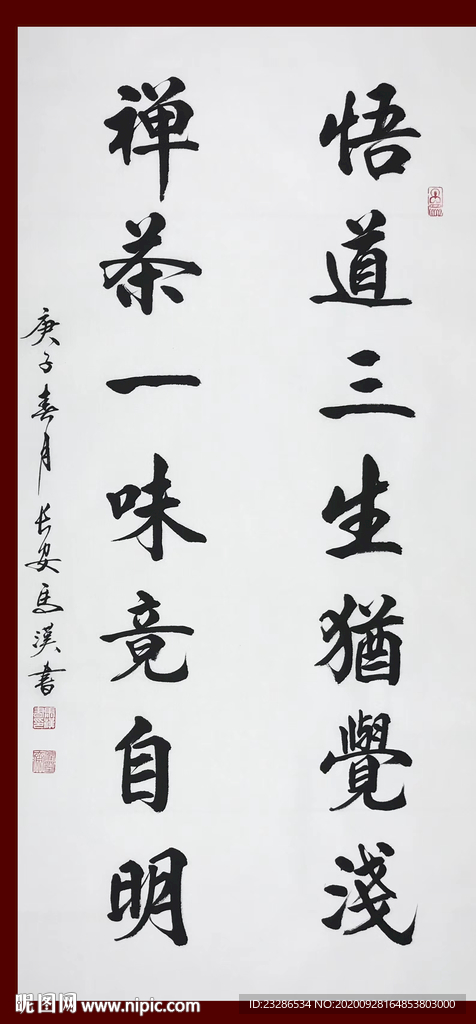 悟道三生猶覺淺
禅茶一味竟自明
庚子春月长安马漢书
昵图网 www.nipic.com
ID:23286534 NO:20200928164853803000